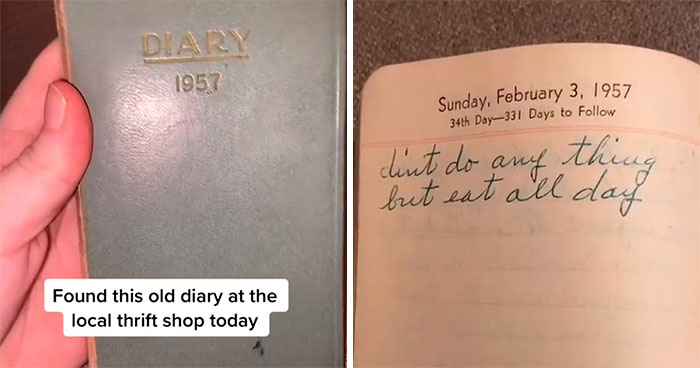 DIARY
1957
Found this old diary at the
local thrift shop today
Sunday, February 3, 1957
34th Day—331 Days to Follow
dint do any thing
but eat all day